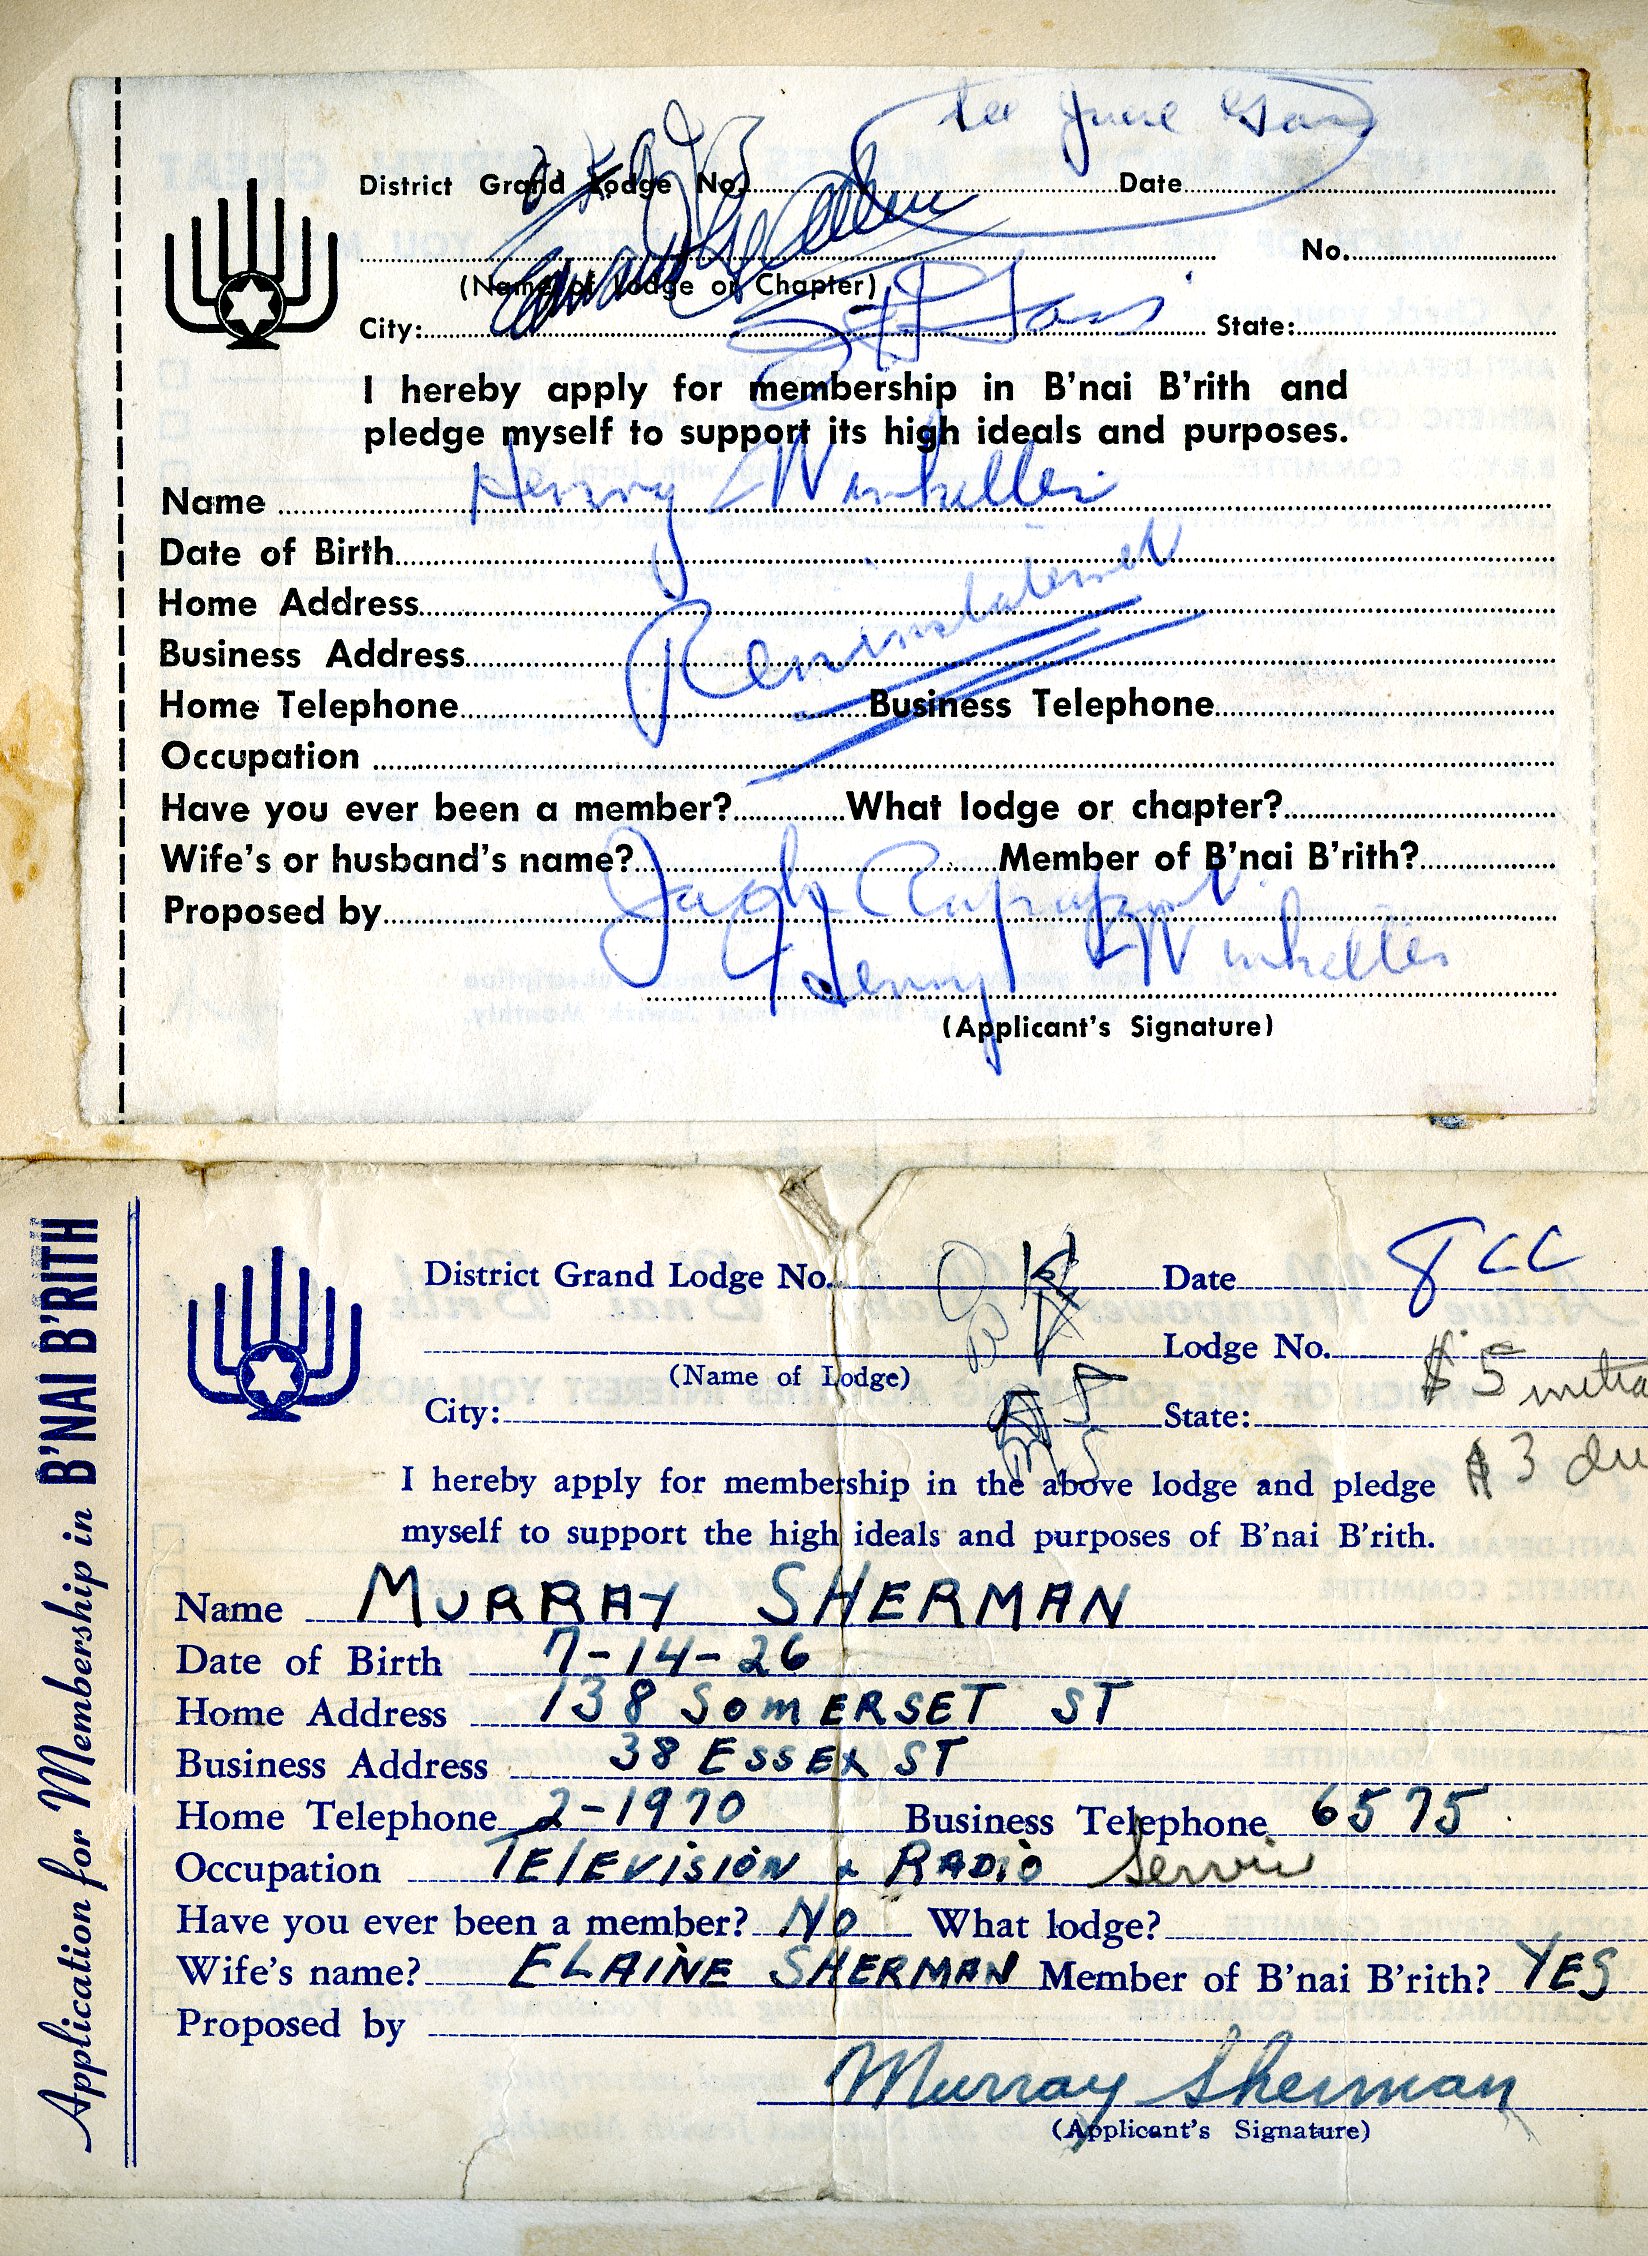 District Grand Lodge No. Date
No.
(Name of Lodge or Chapter)
City: State:
I hereby apply for membership in B'nai B'rith and
pledge myself to support its high ideals and purposes.
Name Henry Winkeller
Date of Birth
Home Address
Business Address
Home Telephone Business Telephone
Occupation
Have you ever been a member? What lodge or chapter?
Wife's or husband's name? Member of B'nai B'rith?
Proposed by
Henry Winkeller
(Applicant's Signature)
Application for Membership in B'NAI B'RITH
District Grand Lodge No. OK Date
Lodge No. $5
(Name of Lodge)
City: State:
$3
I hereby apply for membership in the above lodge and pledge
myself to support the high ideals and purposes of B'nai B'rith.
Name MURRAY SHERMAN
Date of Birth 7-14-26
Home Address 138 SOMERSET ST
Business Address 38 ESSEX ST
Home Telephone 2-1970 Business Telephone 6575
Occupation TELEVISION & RADIO Service
Have you ever been a member? NO What lodge?
Wife's name? ELAINE SHERMAN Member of B'nai B'rith? YES
Proposed by
Murray Sherman
(Applicant's Signature)